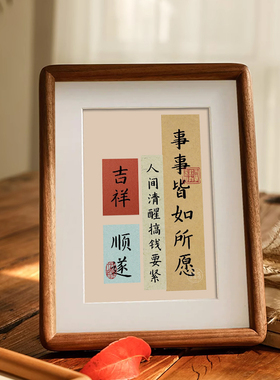 事事皆如所愿
人间清醒搞钱要紧
吉祥
顺遂